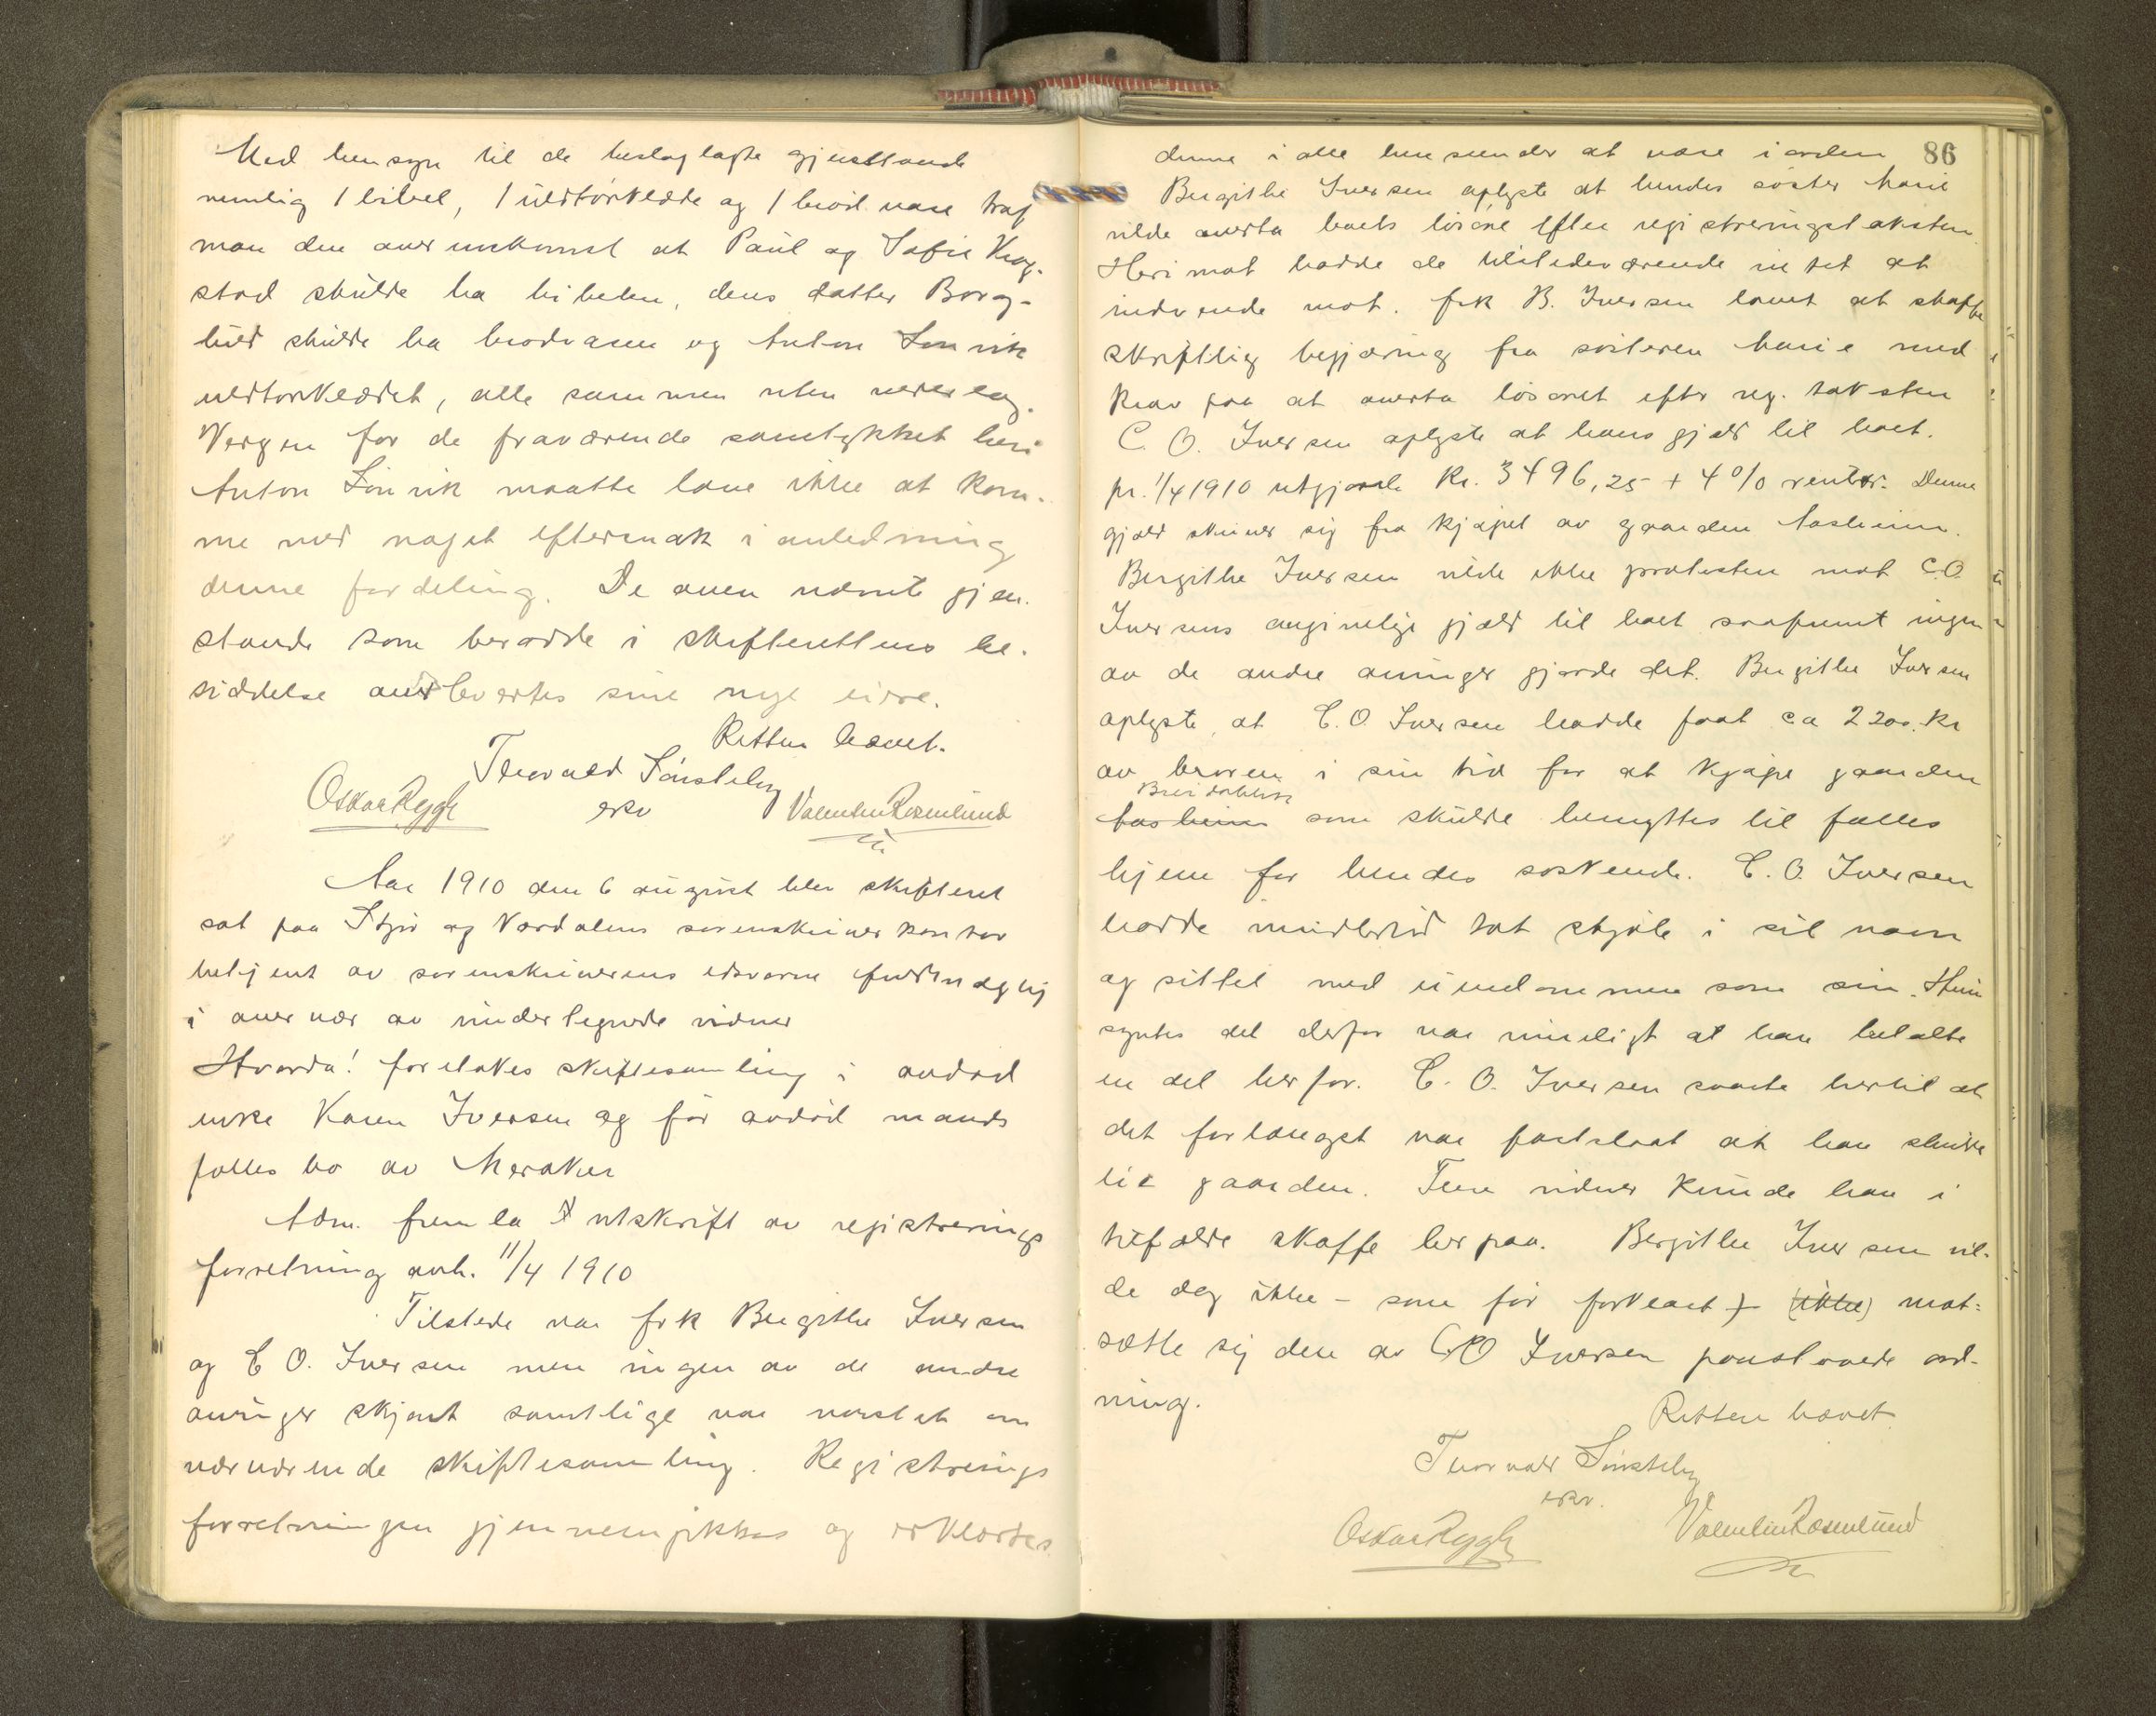 Med hensyn til de beslaglagte gjenstande
nemlig 1 bibel, 1 uldtørklæde og 1 brød vase traf
man den overenskomst at Paul og Sofie Krog-
stad skulde ha bibelen, dens datter Borg-
hild skulde ha brodvasen og Anton Lønvik
uldtørklædet, alle sammen uten vederlag.
Vergen for de fraværende samtykket heri
Anton Lønvik maatte love ikke at kom-
me med noget eftersnak i anledning
denne fordeling. De oven nævnte gjen-
stande som berodde i skifterettens be-
siddelse overlevertes sine nye eiere.
Retten hævet.
Thorvald Sønsteby
Oskar Rygh eksv Valentin Rosenlund
Aar 1910 den 6 august blev skifteret
sat paa Stjør og Værdalens sorenskriverkontor
betjent av sorenskriverens edsvorne fuldmægtig
i overvær av undertegnede vidner
Hvorda! foretokes skiftesamling i avdød
enke Karen Iversen og før avdød mands
fælles bo av Meraker
Adm. fremla utskrift av registrerings
forretning avh. 11/4 1910
Tilstede var frk Bergithe Iversen
og C O. Iversen men ingen av de andre
arvinger skjønt samtlige var varslet om
nærværende skiftesamling. Registrerings
forretningen gjennemgikkes og erklærtes
86
denne i alle henseender at være i orden
Bergithe Iversen oplyste at hendes søster Marie
vilde overta boets løsøre efter registreringstaksten
Herimot hadde de tilstedeværende intet at
indvende mot. frk B. Iversen lovet at skaffe
skriftlig begjæring fra søsteren Marie med
krav paa at overta løsøret efter reg. taksten
C. O. Iversen oplyste at hans gjæld til boet.
pr. 1/4 1910 utgjorde Kr. 3496,25 + 4 % renter. Denne
gjæld skriver sig fra kjøpet av gaarden Aasheim.
Bergithe Iversen vilde ikke protestere mot C.O.
Iversens angivelige gjæld til boet saafremt ingen
av de andre arvinger gjorde det. Bergithe Iversen
oplyste, at C. O. Iversen hadde faat ca 2200. Kr
av broren i sin tid for at kjøpe gaarden
Aasheim som skulde benyttes til fælles
hjem for hendes søskende. C. O. Iversen
hadde imidlertid tat skjøte i sit navn
og sittet med eiendommen som sin. Hun
syntes det derfor var rimeligt at han betalte
en del herfor. C. O. Iversen svarte hertil at
det forlængst var fastslaat at han skulde
ha gaarden. Flere vidner kunde han i
tilfælde skaffe herpaa. Bergithe Iversen vil-
de dog ikke – som før forklart – (ikke) mot-
sætte sig den av C O Iversen paastaaede ord-
ning.
Retten hævet
Thorvald Sønsteby
eksv.
Oskar Rygh Valentin Rosenlund